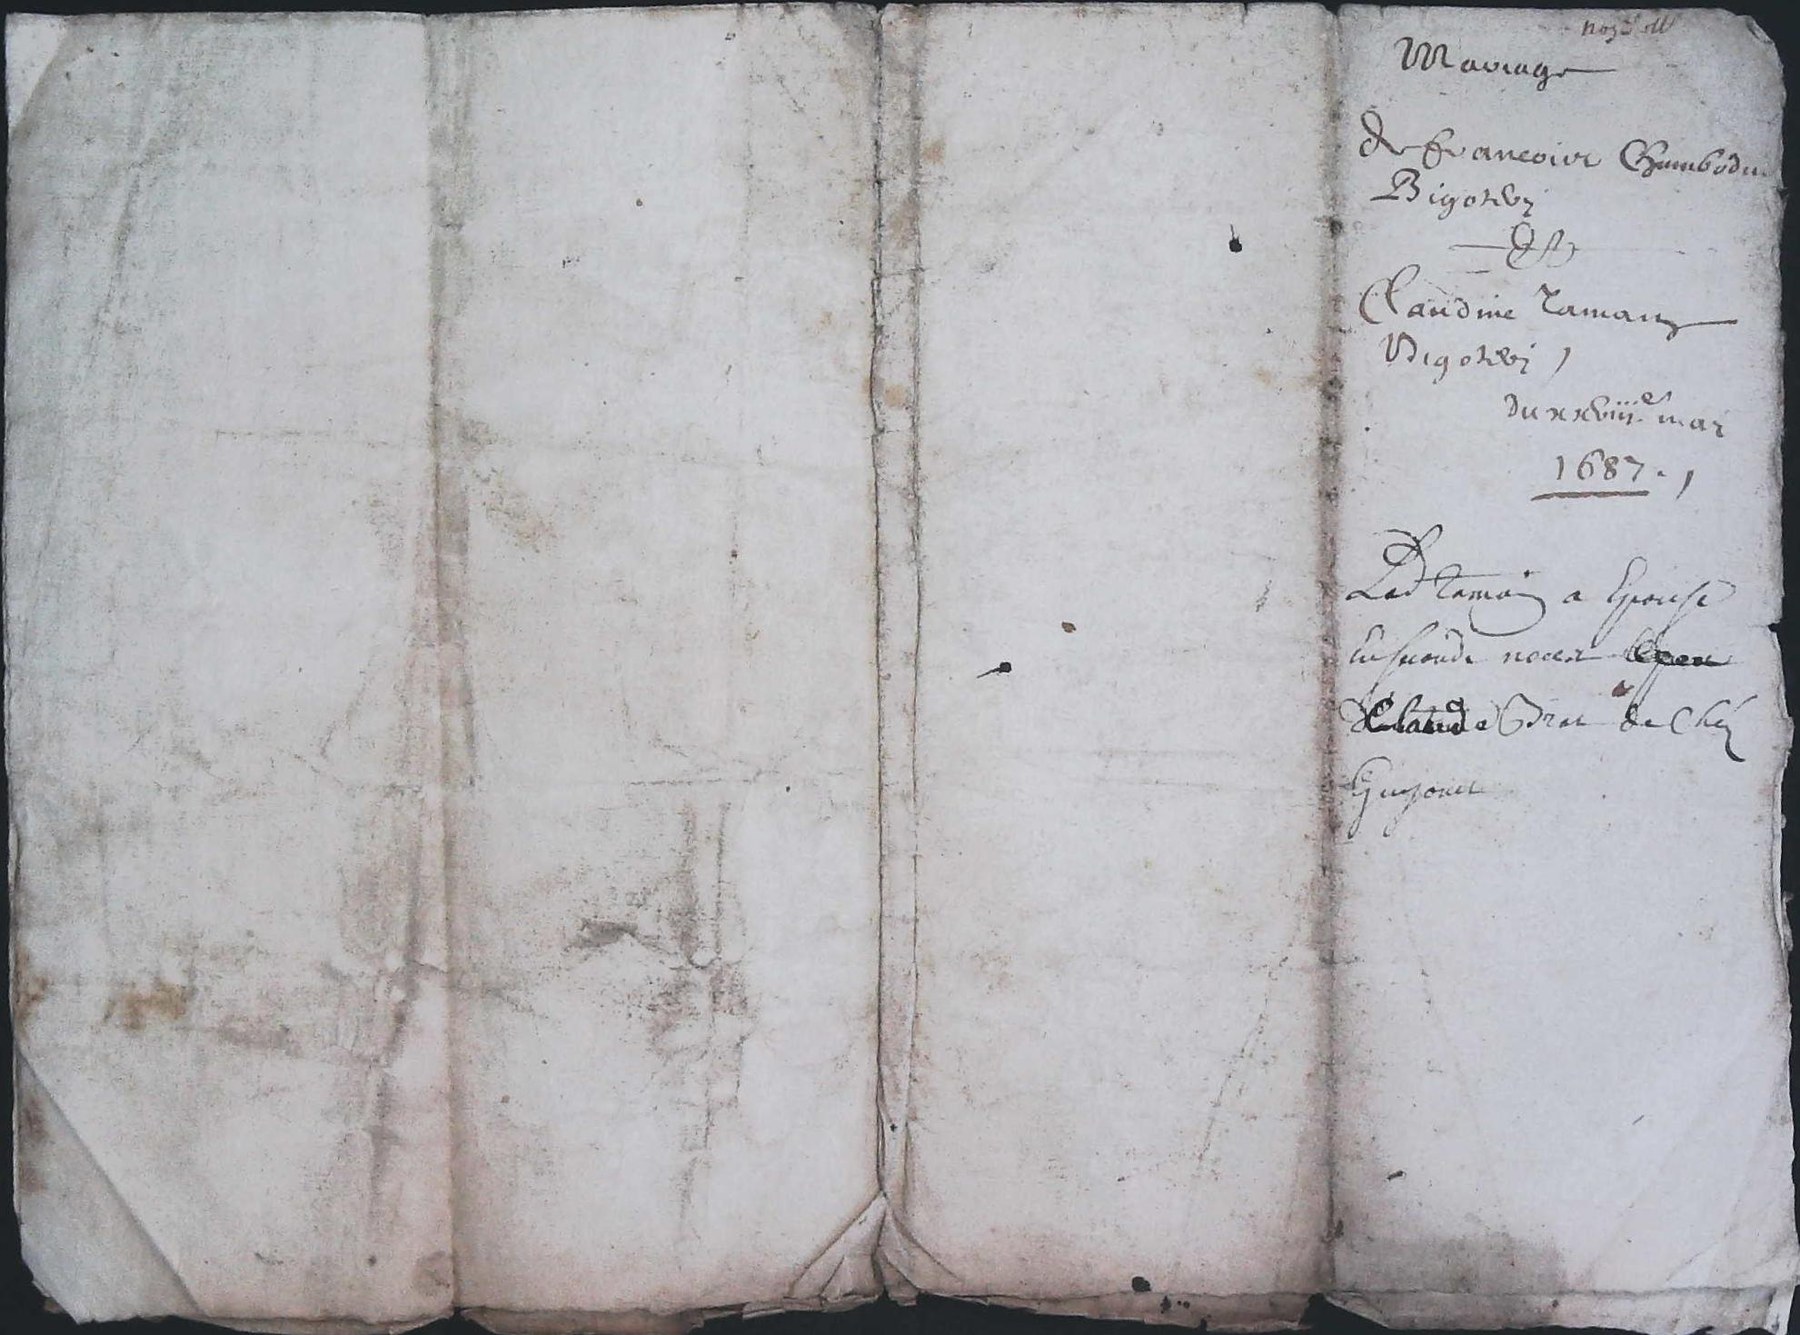 Mariage
De francois Chambodu
Bigotbj
Et
Claudine Tamain
Bigotbj
du xxviii.e mai
1687.
Lad Tamain a Epousé
En secondes noces
Claude Brat de Chéz
Guyonet